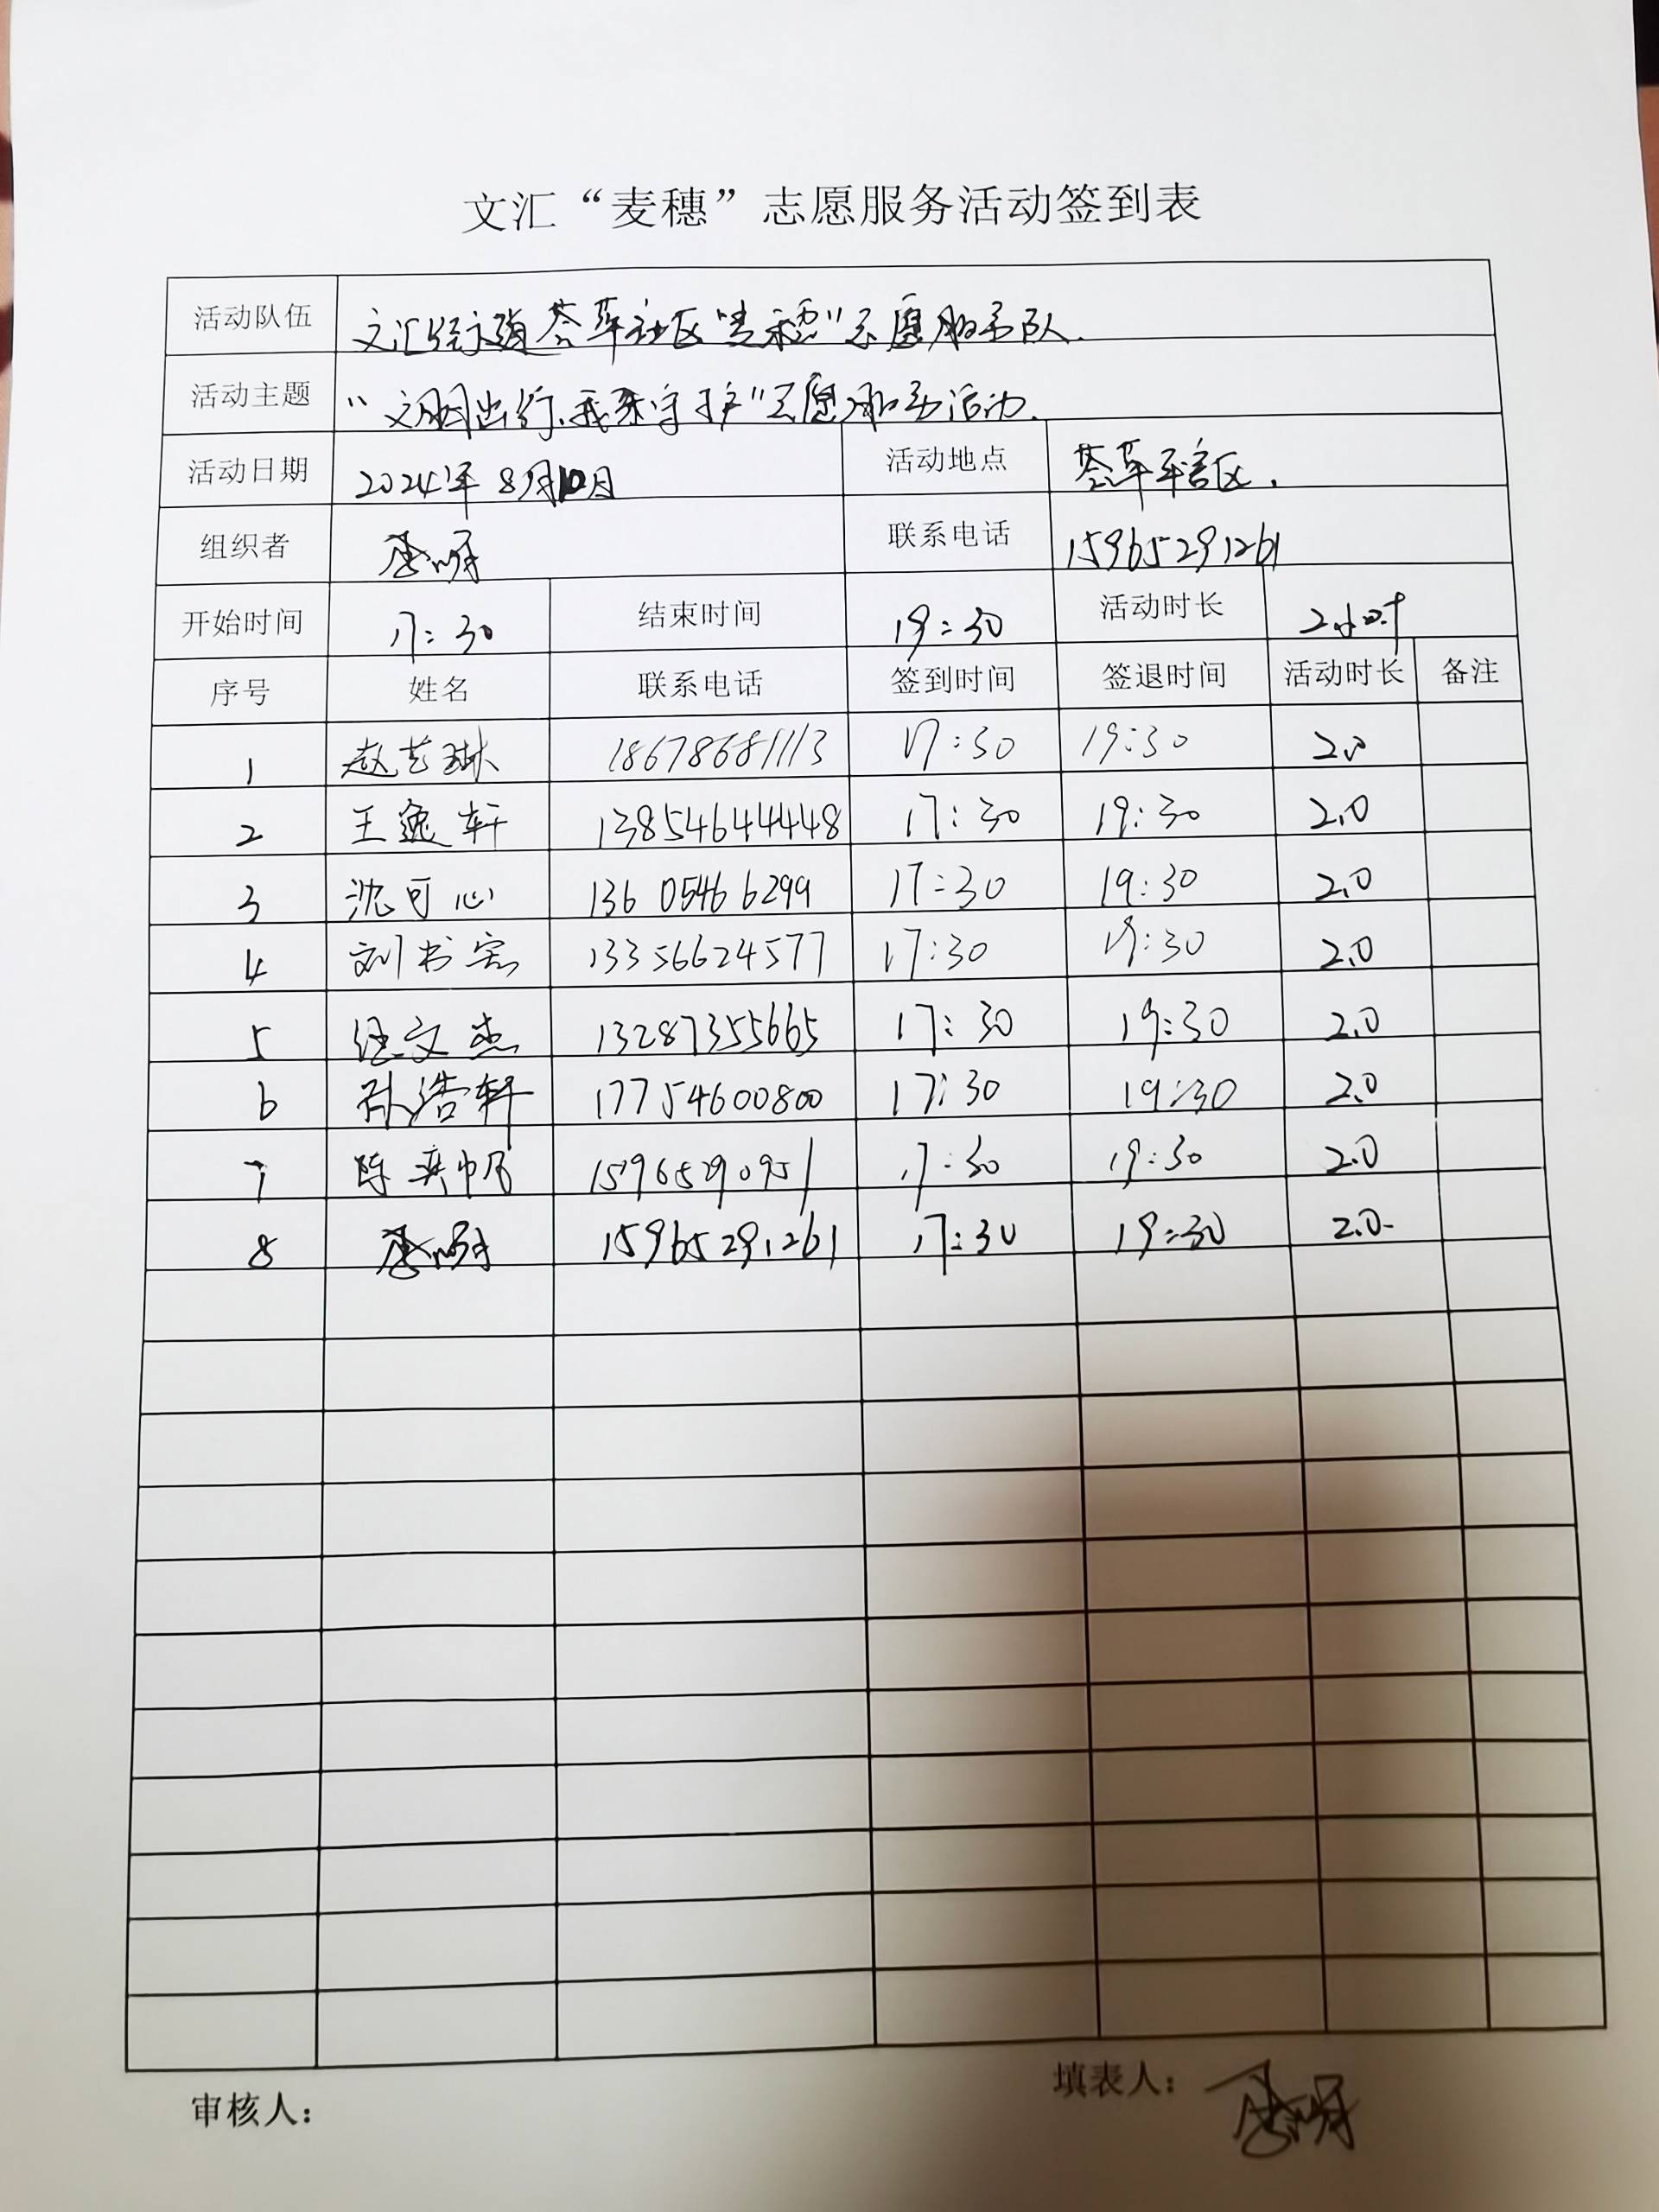 文汇“麦穗”志愿服务活动签到表
活动队伍 文汇街道荟萃社区“麦穗”志愿服务队.
活动主题 “文明出行、我来守护”志愿服务活动.
活动日期 2024年8月10日 活动地点 荟萃辖区.
组织者 联系电话 15965291261
开始时间 17:30 结束时间 19:30 活动时长 2小时
序号 姓名 联系电话 签到时间 签退时间 活动时长 备注
1 赵艺琳 18678681113 17:30 19:30 2.0
2 王逸轩 13854644448 17:30 19:30 2.0
3 沈可心 13605466299 17:30 19:30 2.0
4 刘书宏 13356624577 17:30 19:30 2.0
5 汪文杰 13287355665 17:30 19:30 2.0
6 孙浩轩 17754600800 17:30 19:30 2.0
7 陈奕帆 15965290951 17:30 19:30 2.0
8 15965291261 17:30 19:30 2.0
审核人： 填表人：